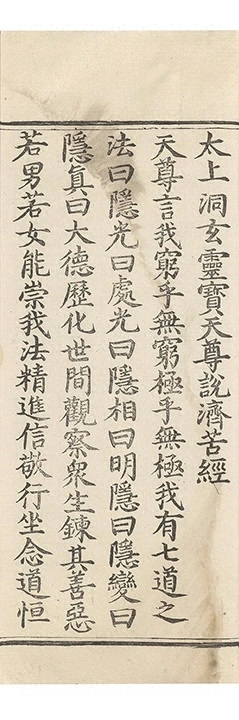 太上洞玄靈寶天尊說濟苦經
天尊言我窮乎無窮極乎無極我有七道之
法曰隱光曰處光曰隱相曰明隱曰隱變曰
隱真曰大德歷化世間觀察衆生鍊其善惡
若男若女能崇我法精進信敬行坐念道恒